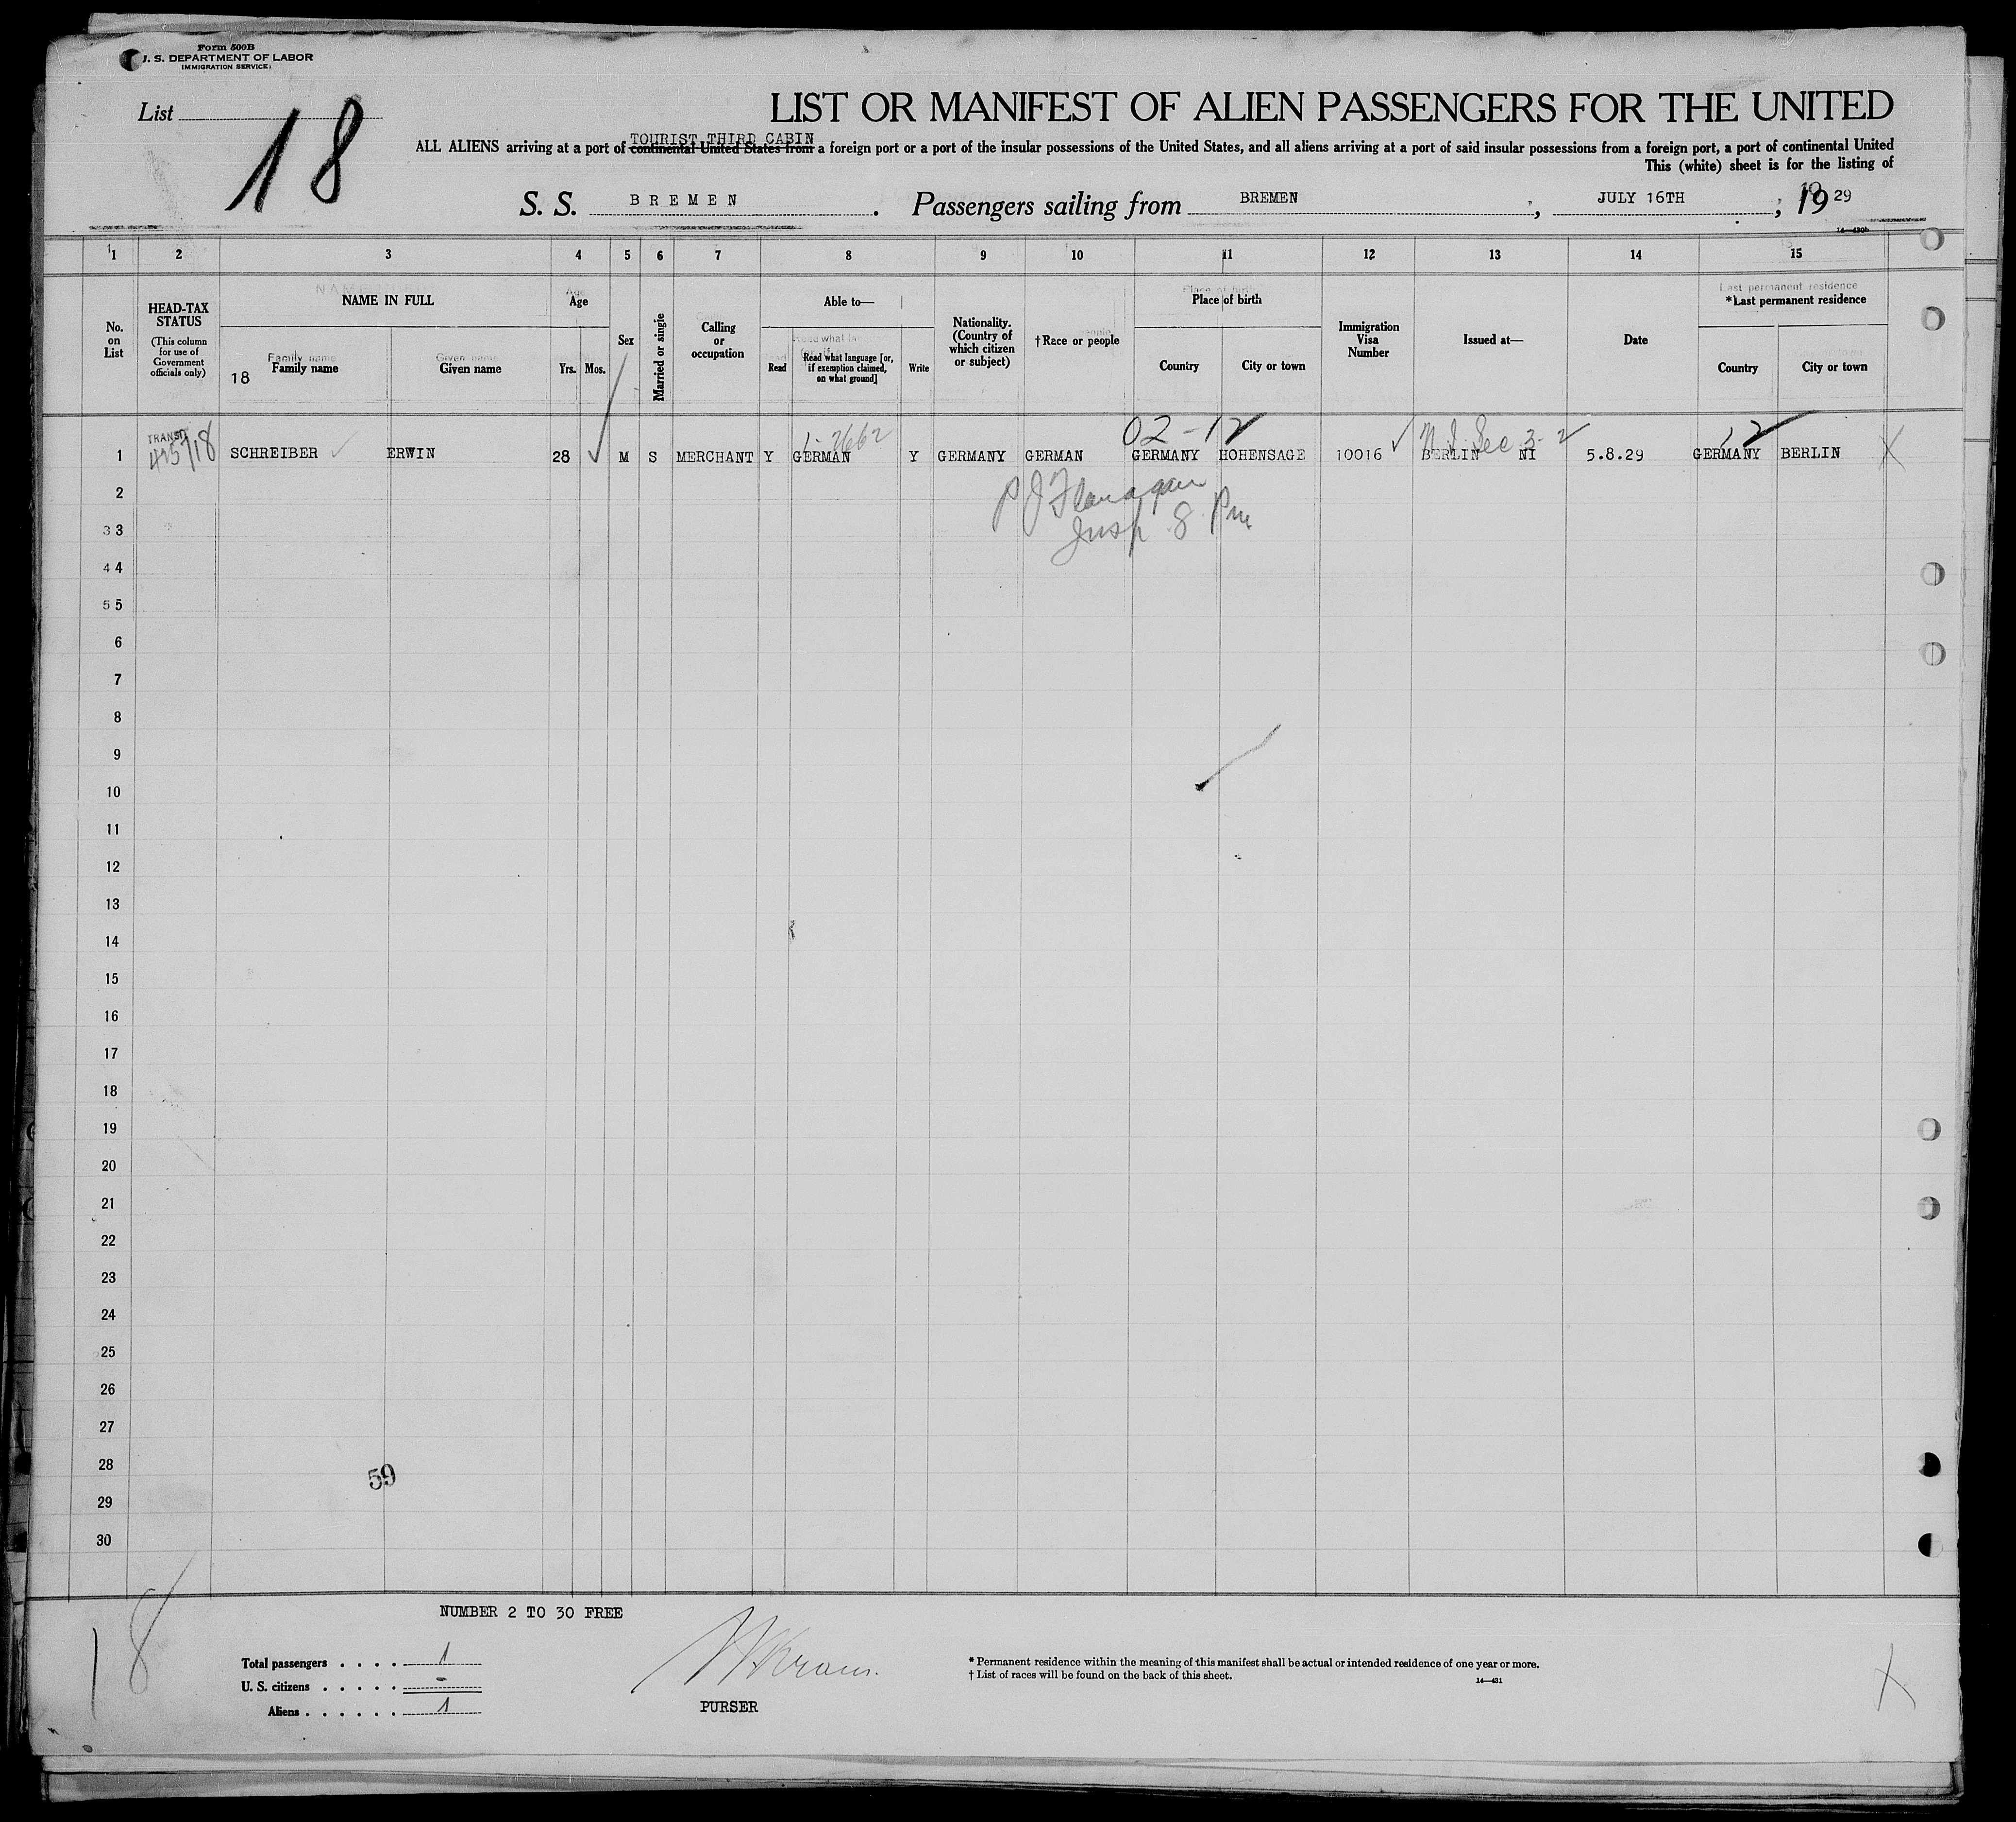 Form 500B
U. S. DEPARTMENT OF LABOR
IMMIGRATION SERVICE
List 18
LIST OR MANIFEST OF ALIEN PASSENGERS FOR THE UNITED
TOURIST THIRD CABIN
ALL ALIENS arriving at a port of continental United States from a foreign port or a port of the insular possessions of the United States, and all aliens arriving at a port of said insular possessions from a foreign port, a port of continental United
This (white) sheet is for the listing of
S. S. BREMEN. Passengers sailing from BREMEN, JULY 16TH, 1929
14—430b
1 2 3 4 5 6 7 8 9 10 11 12 13 14 15
No. on List
HEAD-TAX STATUS
(This column for use of Government officials only)
NAME IN FULL
18 Family name
Given name
Age
Yrs. Mos.
Sex
Married or single
Calling or occupation
Able to—
Read
Read what language [or, if exemption claimed, on what ground]
Write
Nationality. (Country of which citizen or subject)
†Race or people
Place of birth
Country
City or town
Immigration Visa Number
Issued at—
Date
*Last permanent residence
Country
City or town
02-12
12
TRANSIT
1 SCHREIBER ERWIN 28 M S MERCHANT Y GERMAN Y GERMANY GERMAN GERMANY HOHENSAGE 10016 BERLIN NI 5.8.29 GERMANY BERLIN X
2
P J Flanagan
3 3
Insp 8 Pm
4 4
5 5
6
7
8
9
10
11
12
13
14
15
16
17
18
19
20
21
22
23
24
25
26
27
28
59
29
30
18
NUMBER 2 TO 30 FREE
Total passengers . . . . 1
U. S. citizens . . . . . -
Aliens . . . . . . 1
PURSER
* Permanent residence within the meaning of this manifest shall be actual or intended residence of one year or more.
† List of races will be found on the back of this sheet.
14—431
X